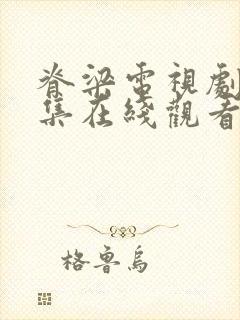 脊梁電視劇
集在綫觀看
格魯烏